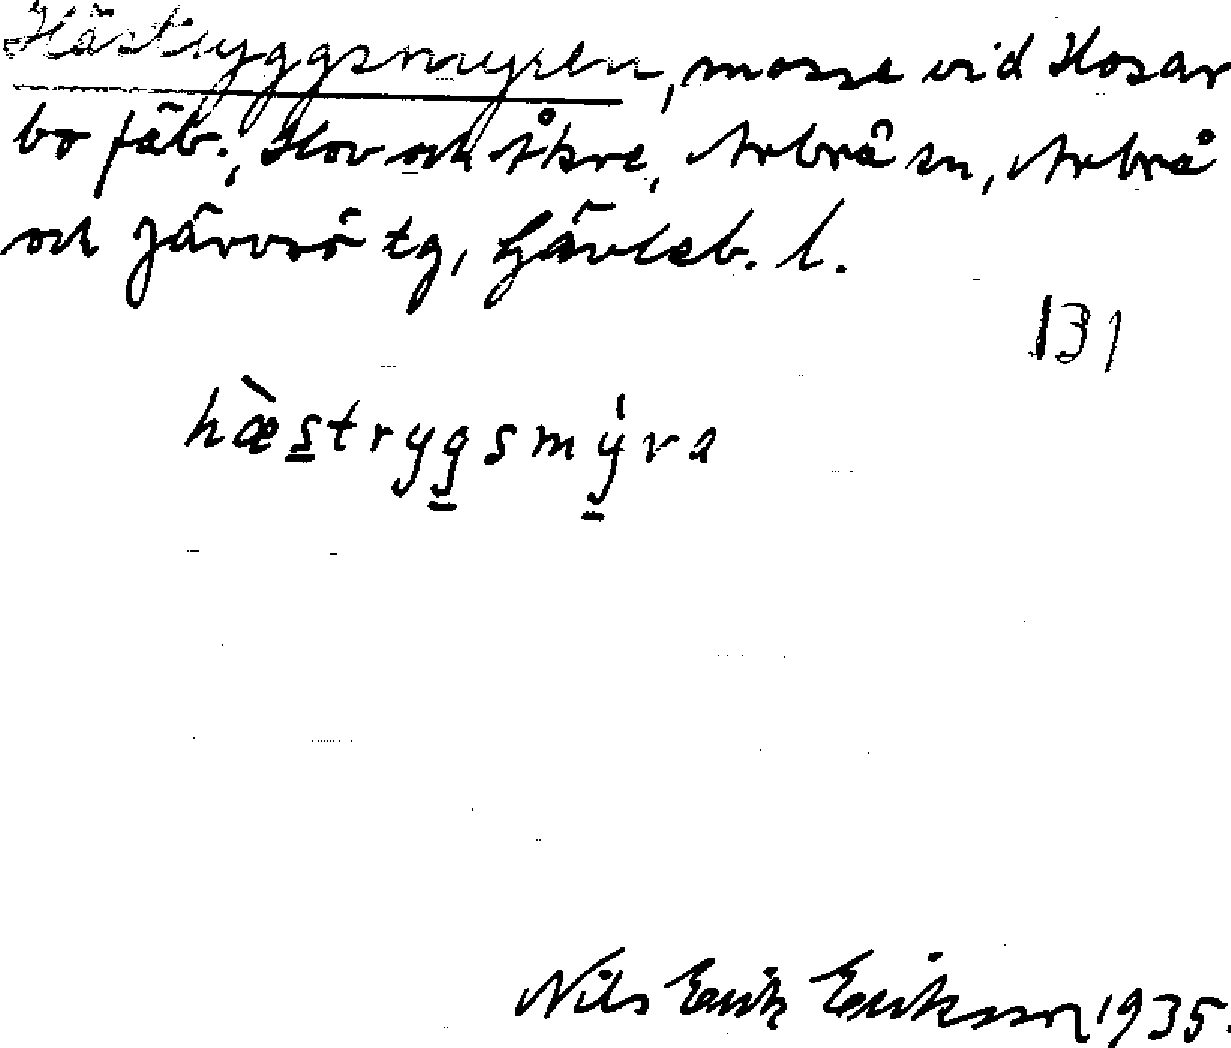 Hästryggsmyren, mosse vid Hosar
bo fäb., Hov och Åkre, Arbrå sn, Arbrå
och Järvsö tg, Gävleb. l.
131
hæ̀strygsmýra
Nils Erik Eriksson 1935.